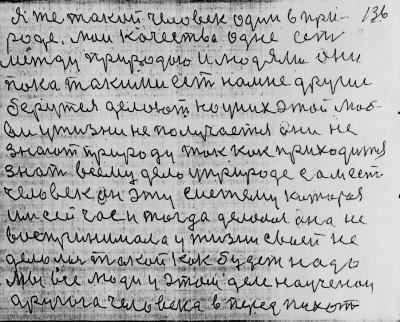 136
Я же такой человек один в при-
роде. мои качества одне сет
между природою и людями они
пока такими ест на мне другии
берутся делоют но у них этой люб-
ви у жизни не получается они не
знают природу так как приходится
знат всему делу природе сам ест
человек он эту систему каторая
им сей час и тогда делоал она не
воспринимала у жизни своей не
делолся такой как будет надо
мы все люди у этом деле научоной
другога человека в перед пихот